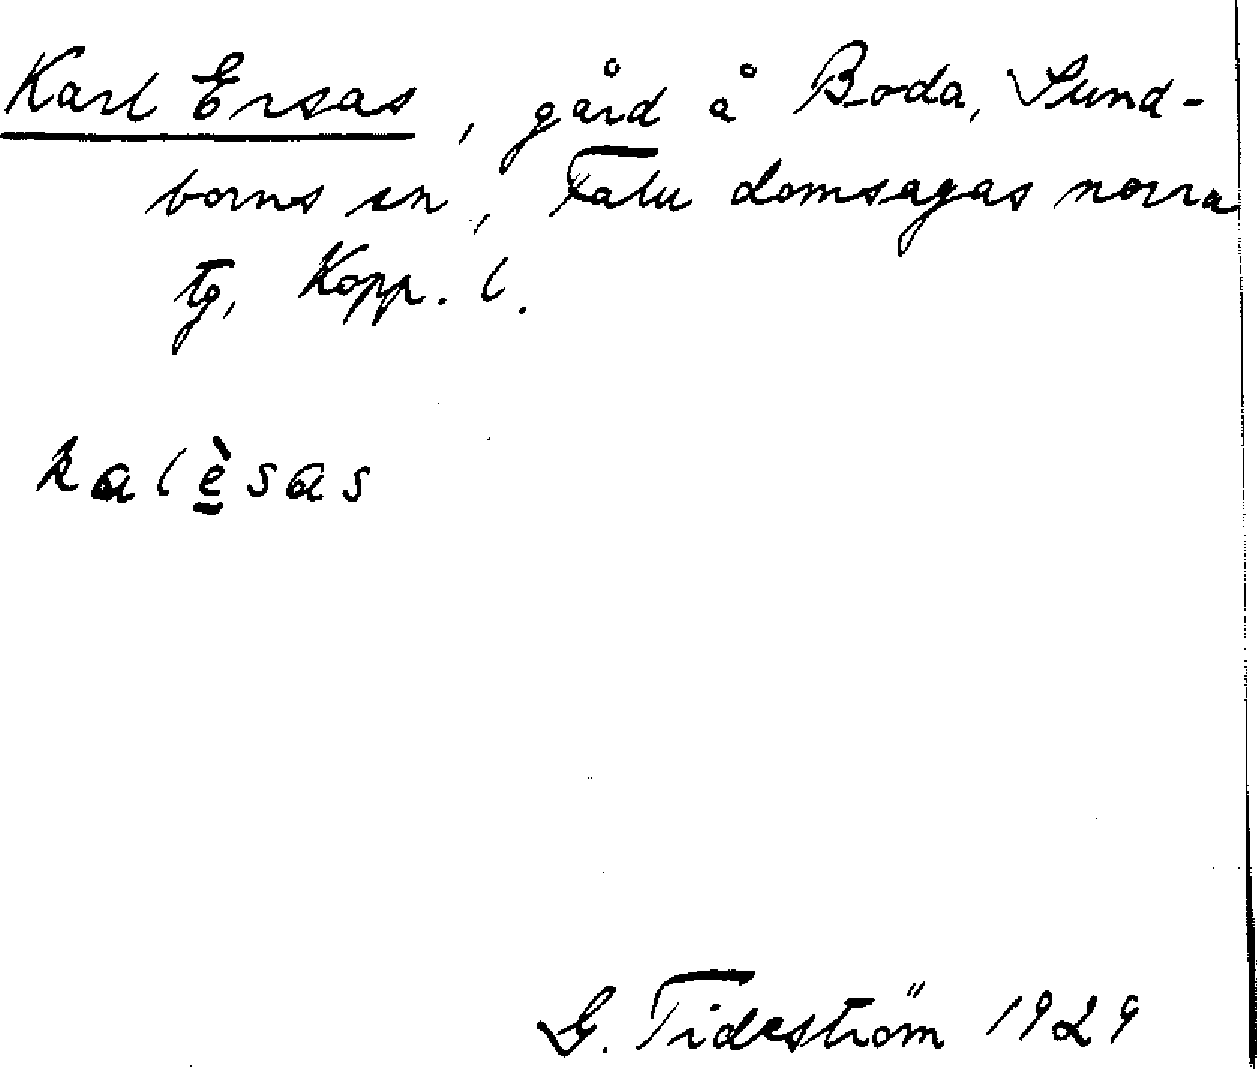 Karl Ersas, gård å Boda, Sund-
borns sn, Falu domsagas norra
tg, Kopp. l.
kalèsas
G. Tideström 1929